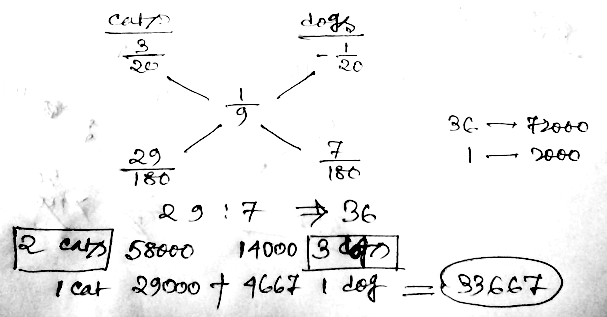 cats dogs
3/20 -1/20
1/9
36 → 72000
1 — 2000
29/180 7/180
29 : 7 ⇒ 36
2 cats 58000 14000 3 dogs
1 cat 29000 + 4667 1 dog = 33667